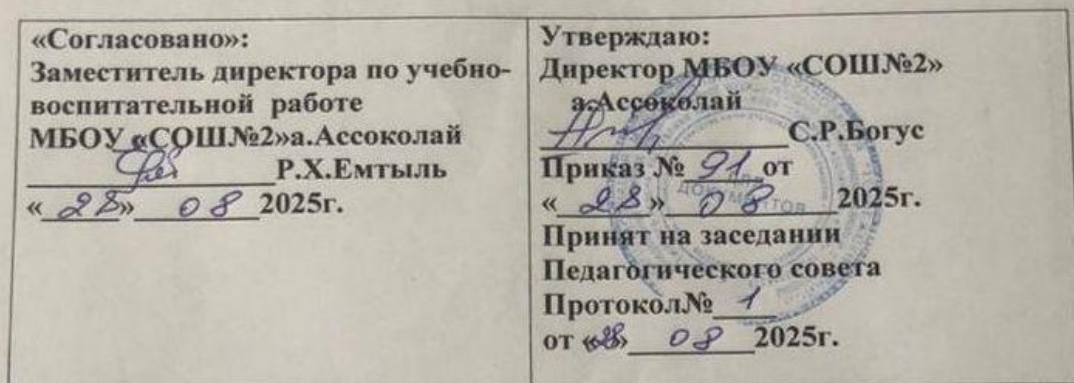 «Согласовано»:
Заместитель директора по учебно-
воспитательной работе
МБОУ «СОШ№2»а.Ассоколай
Р.Х.Емтыль
«28» 08 2025г.
Утверждаю:
Директор МБОУ «СОШ№2»
а.Ассоколай
С.Р.Богус
Приказ № 91 от
«28» 08 2025г.
ДОКУМЕНТОВ
Принят на заседании
Педагогического совета
Протокол№ 1
от «28» 08 2025г.